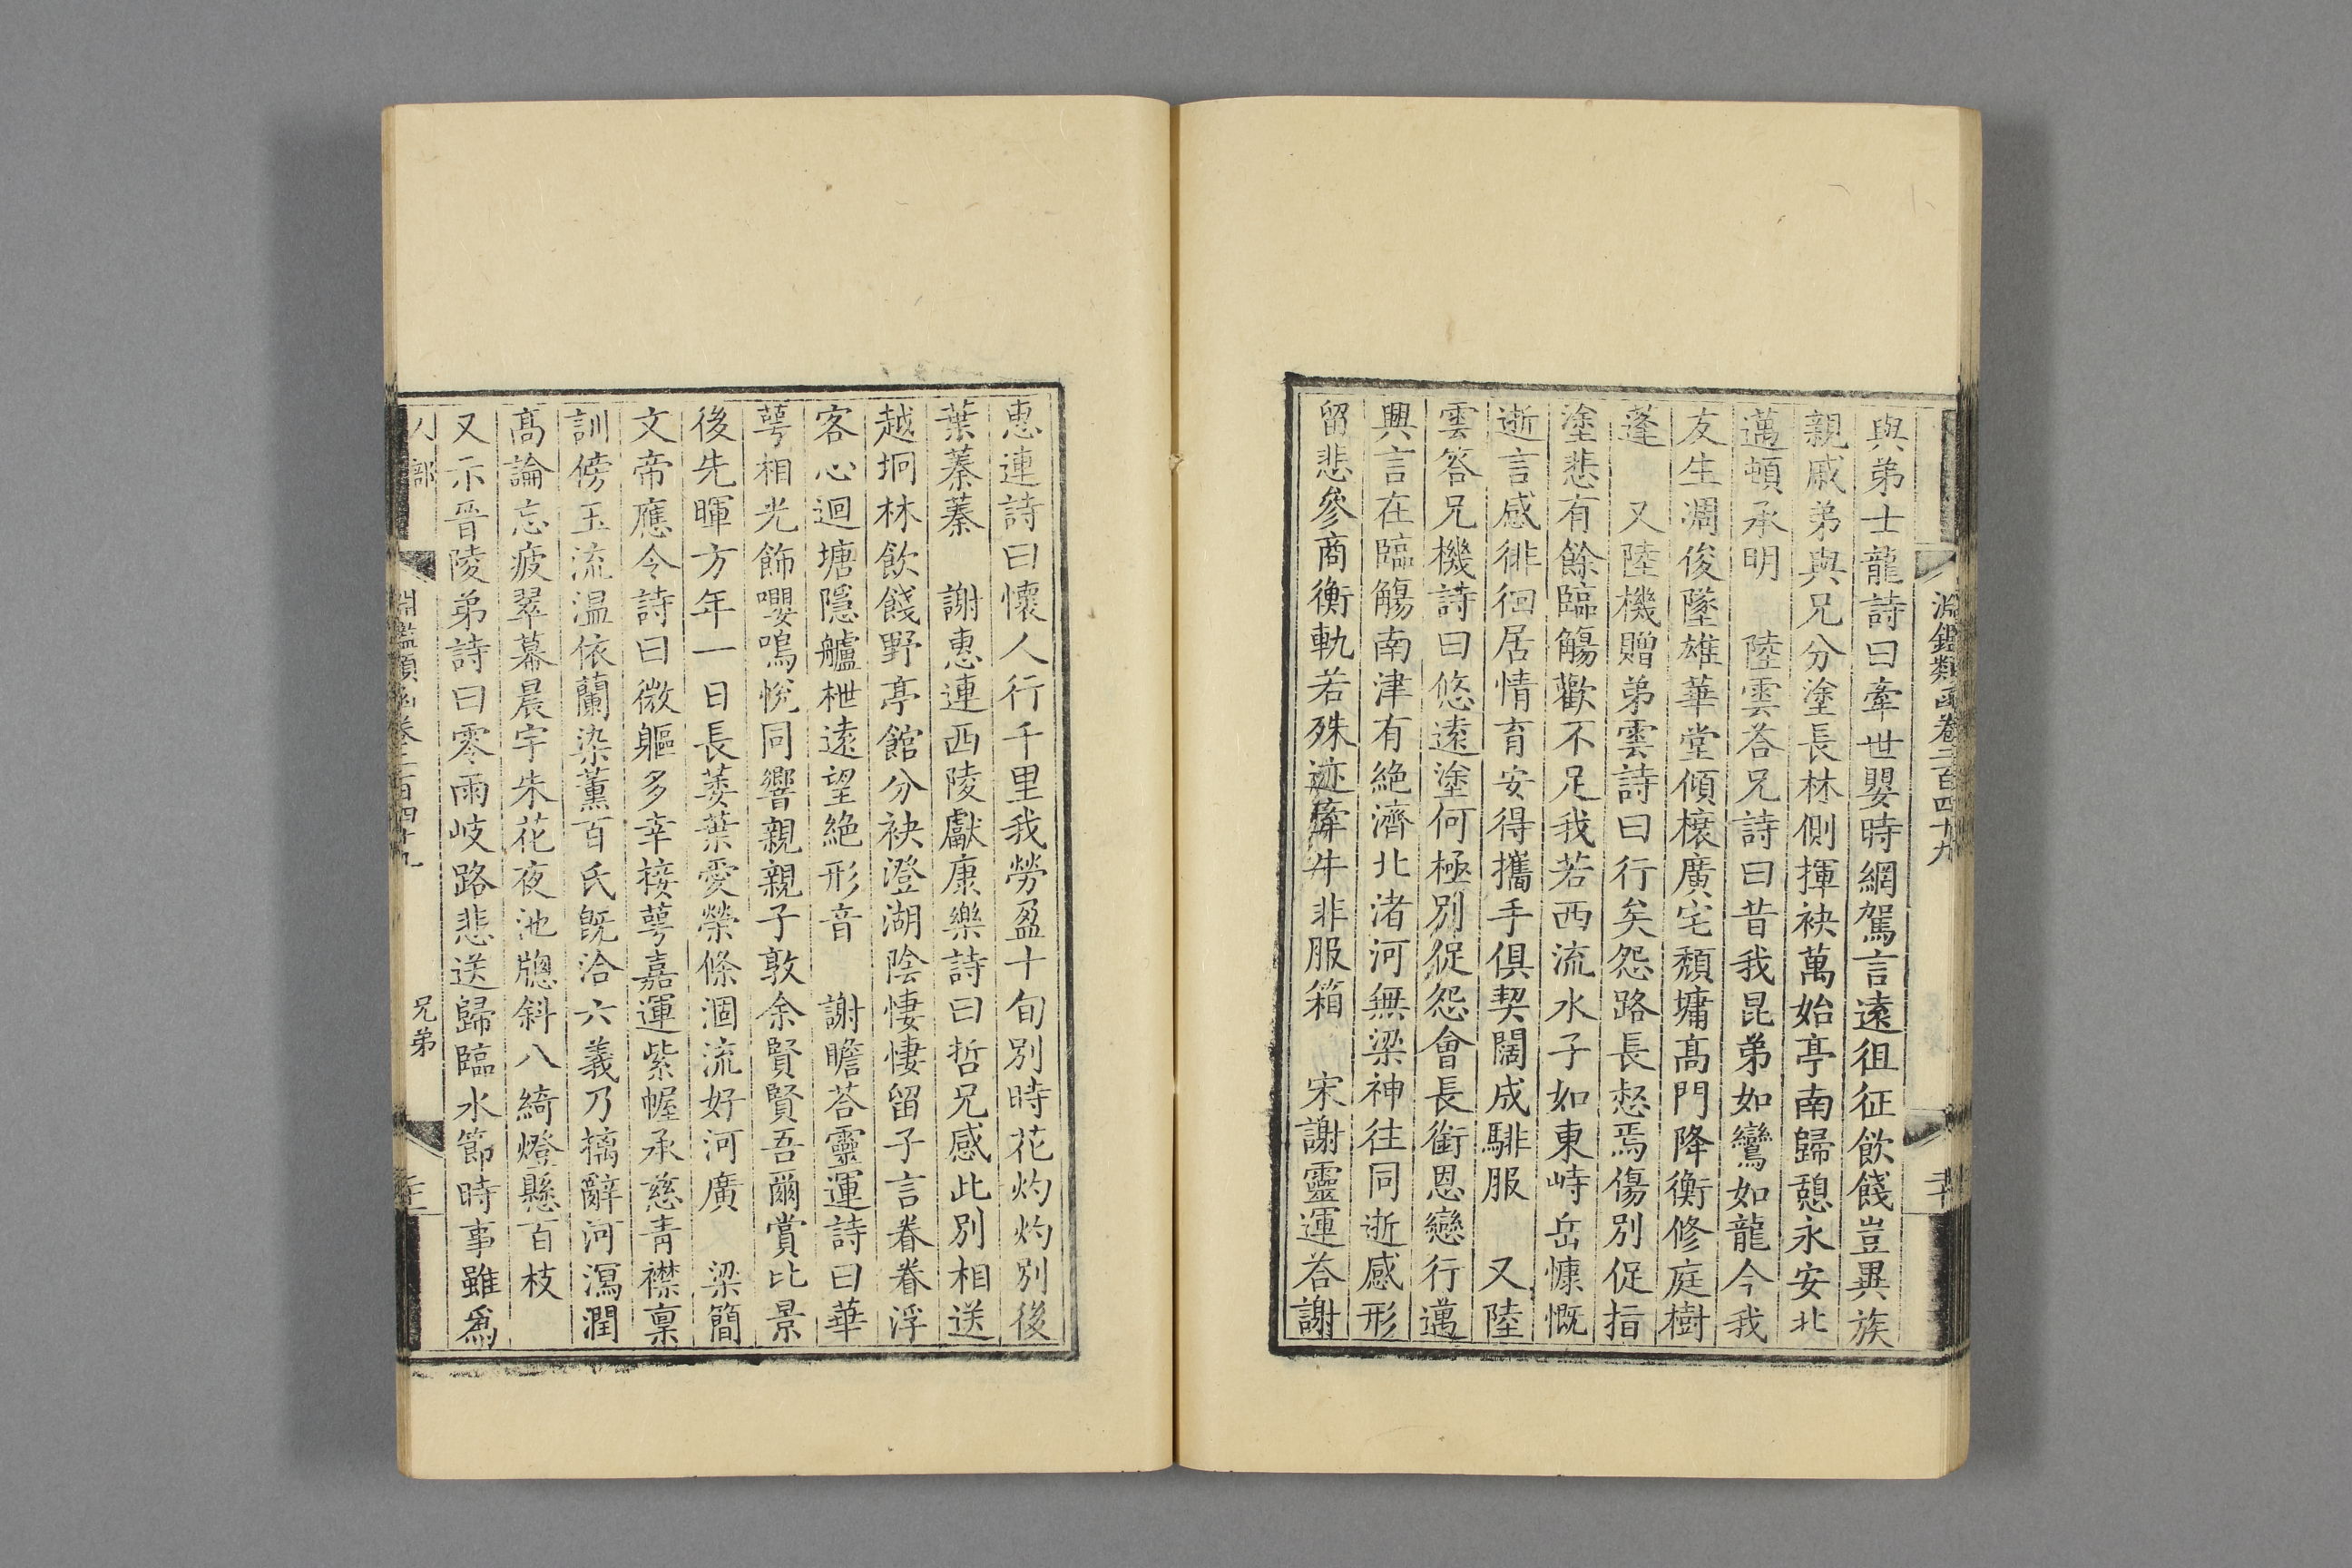 淵鑑類函卷二百四十九
與弟士龍詩曰牽世嬰時網駕言遠徂征飲餞豈異族
親戚弟與兄分塗長林側揮袂萬始亭南歸憩永安北
邁頓承明　陸雲答兄詩曰昔我昆弟如鸞如龍今我
友生凋俊墜雄華堂傾榱廣宅頹墉髙門降衡修庭樹
蓬　又陸機贈弟雲詩曰行矣怨路長惄焉傷別促指
塗悲有餘臨觴歡不足我若西流水子如東峙岳慷慨
逝言感徘徊居情育安得攜手俱契闊成騑服　又陸
雲答兄機詩曰悠遠塗何極別促怨會長銜恩戀行邁
興言在臨觴南津有絶濟北渚河無梁神往同逝感形
留悲參商衡軌若殊迹牽牛非服箱　宋謝靈運荅謝
惠連詩曰懷人行千里我勞盈十旬別時花灼灼別後
葉蓁蓁　謝惠連西陵獻康樂詩曰哲兄感此別相送
越坰林飲餞野亭館分袂澄湖陰悽悽留子言眷眷浮
客心迴塘隱艫枻遠望絶形音　謝瞻荅靈運詩曰華
萼相光飾嚶鳴悅同響親親子敦余賢賢吾爾賞比景
後先暉方年一日長萎葉愛榮條涸流好河廣　梁簡
文帝應令詩曰微軀多幸接萼嘉運紫幄承慈青襟稟
訓傍玉流温依蘭染薰百氏旣洽六義乃摛辭河瀉潤
髙論忘疲翠幕晨宇朱花夜池牕斜八綺燈懸百枝
又示晉陵弟詩曰零雨岐路悲送歸臨水節時事雖爲
人部
淵鑑類函卷二百四十九
兄弟